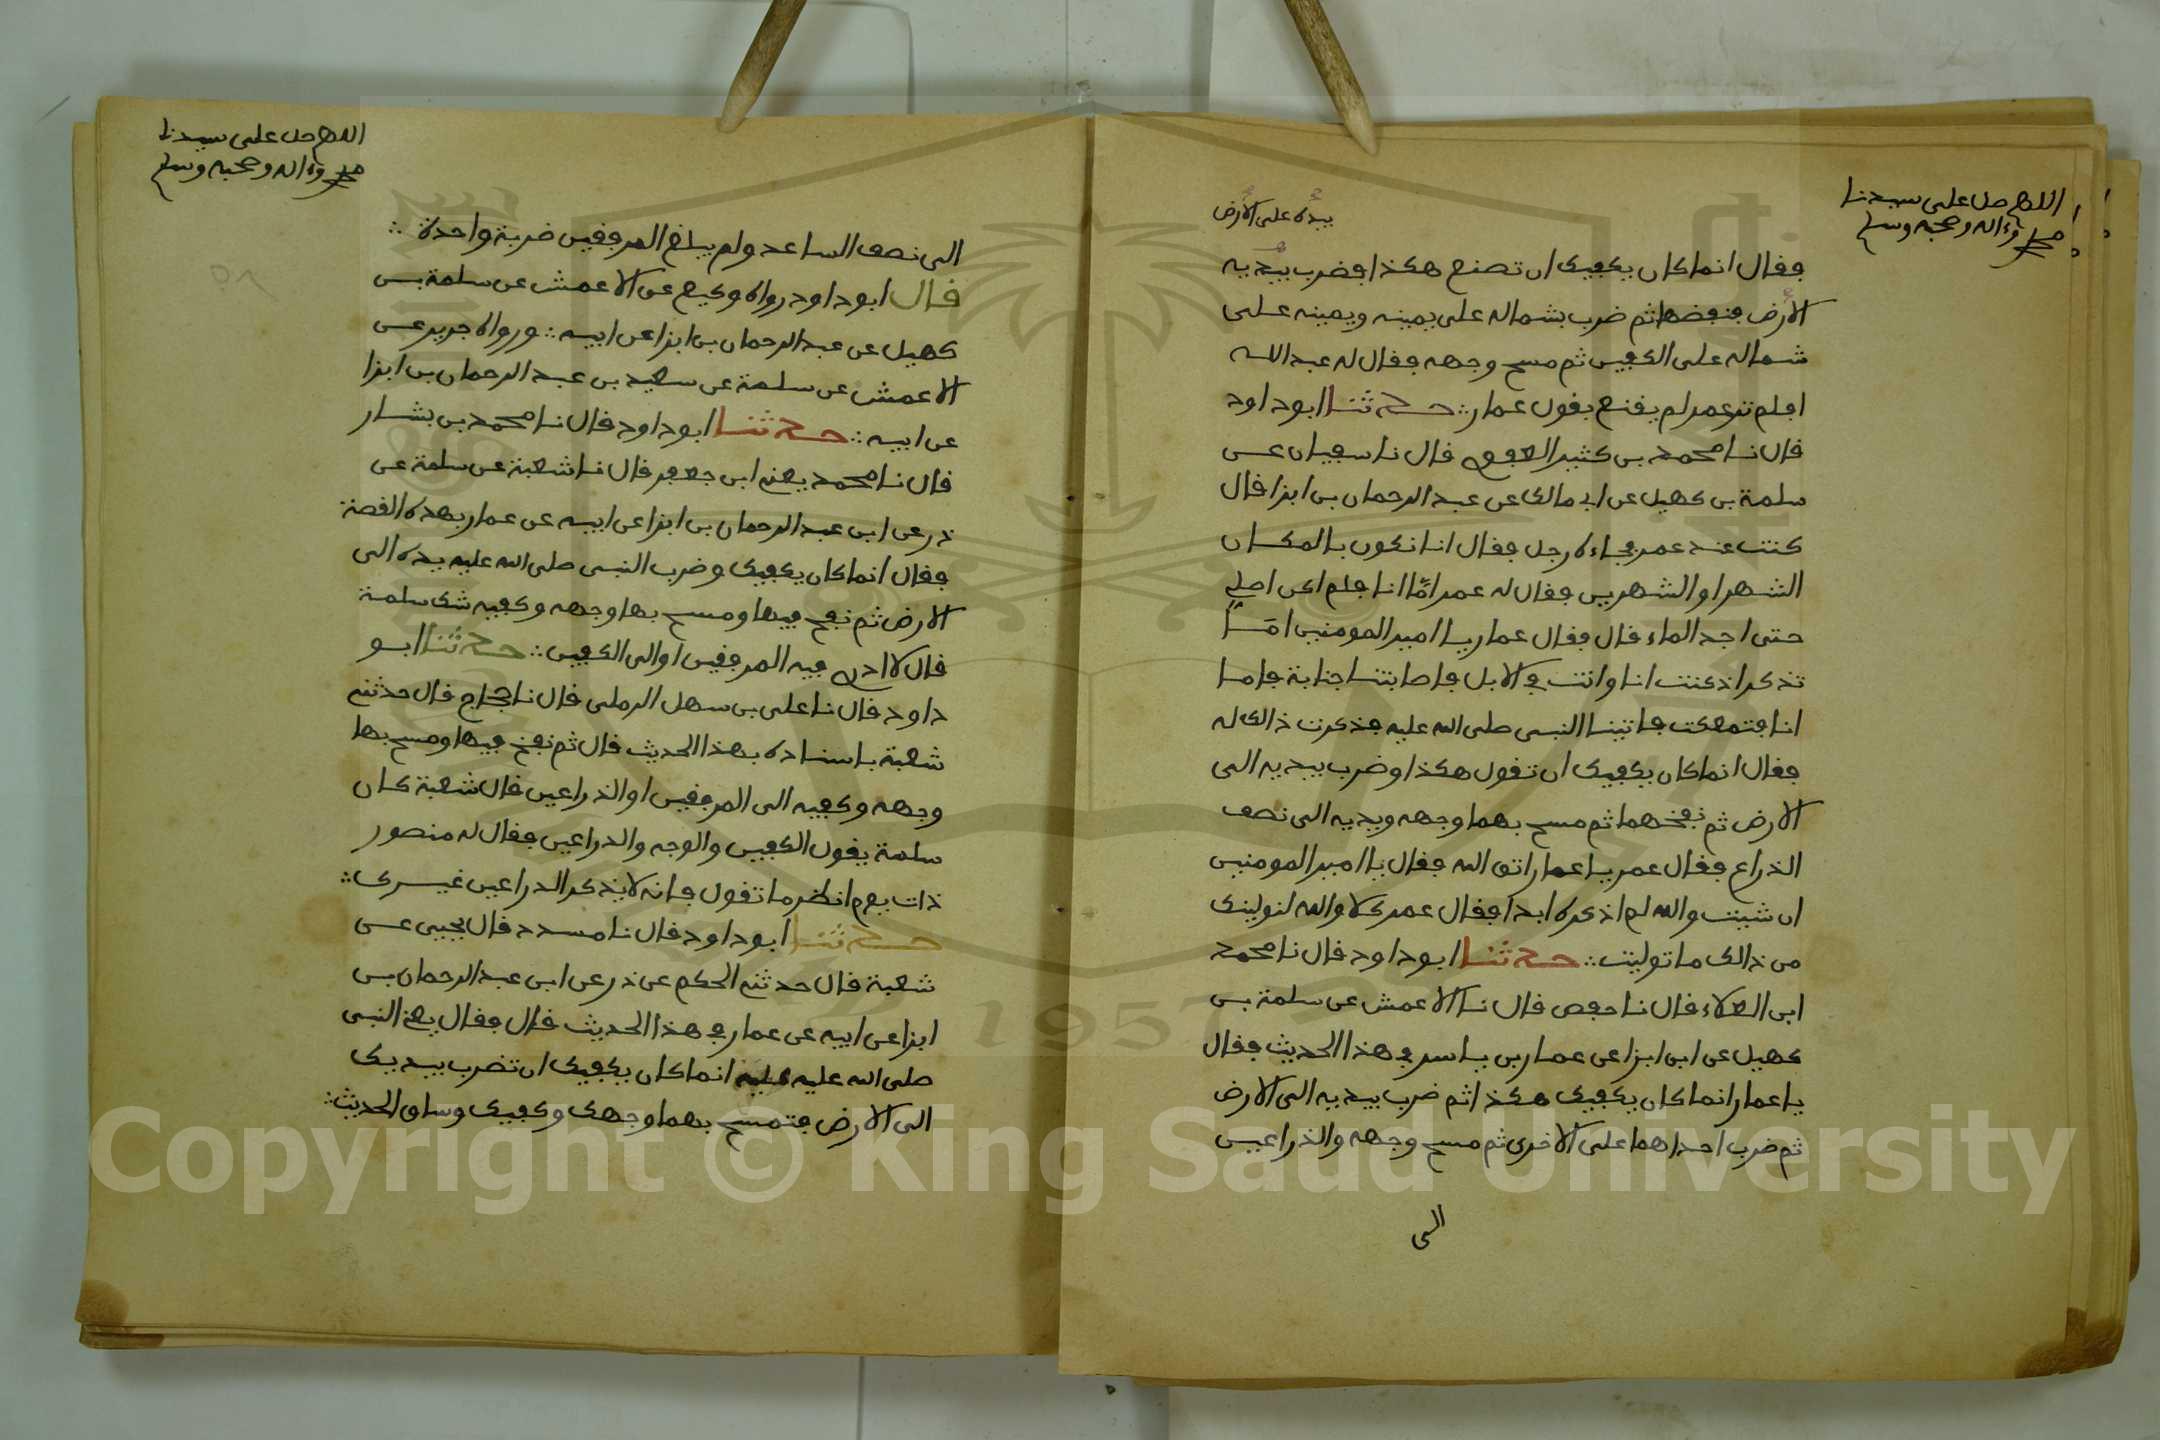 اللهم صل على سيدنا
محمد وءاله وصحبه وسلم
بيده على الأرض
فقال انما كان يكفيك ان تصنع هكذا فضرب بيديه
الارض فنفضها ثم ضرب بشماله على يمينه ويمينه على
شماله على الكفين ثم مسح وجهه فقال له عبد الله
افلم تر عمر لم يقنع بقول عمار ∴ حدثنا ابو داود
قال نا محمد بن كثير العبدي قال نا سفيان عن
سلمة بن كهيل عن ابي مالك عن عبد الرحمان بن ابزا قال
كنت عند عمر فجاءه رجل فقال انا نكون بالمكان
الشهر او الشهرين فقال له عمر امّا انا فلم اكن اصلي
حتى اجد الماء قال فقال عمار يا امير المومنين امَا
تذكر اذ كنت انا وانت في الابل فاصابتنا جنابة فاما
انا فتمعكت فاتينا النبي صلى الله عليه فذكرت ذالك له
فقال انما كان يكفيك ان تقول هكذا وضرب بيديه الى
الارض ثم نفخهما ثم مسح بهما وجهه ويديه الى نصف
الذراع فقال عمر يا عمار اتق الله فقال يا امير المومنين
ان شيت والله لم اذكره ابدا فقال عمر كلا والله لنولينك
من ذالك ما توليت ∴ حدثنا ابو داود قال نا محمد
ابن العلاء قال نا حفص قال نا الاعمش عن سلمة بن
كهيل عن ابن ابزا عن عمار بن ياسر في هذا الحديث فقال
يا عمار انما كان يكفيك هكذا ثم ضرب بيديه الى الارض
ثم ضرب احداهما على الاخرى ثم مسح وجهه والذراعين
الى
اللهم صل على سيدنا
محمد وءاله وصحبه وسلم
٥٨
الى نصف الساعد ولم يبلغ المرفقين ضربة واحدة ∴
قال ابو داود رواه وكيع عن الاعمش عن سلمة بن
كهيل عن عبد الرحمان بن ابزا عن ابيه ∴ ورواه جرير عن
الاعمش عن سلمة عن سعيد بن عبد الرحمان بن ابزا
عن ابيه ∴ حدثنا ابو داود قال نا محمد بن بشار
قال نا محمد يعني ابن جعفر قال نا شعبة عن سلمة عن
ذر عن ابن عبد الرحمان بن ابزا عن ابيه عن عمار بهذه القصة
فقال انما كان يكفيك وضرب النبي صلى الله عليه يده الى
الارض ثم نفخ فيها ومسح بها وجهه وكفيه شك سلمة
قال لا ادري فيه المرفقين او الى الكفين ∴ حدثنا ابو
داود قال نا علي بن سهل الرملي قال نا حجاج قال حدثني
شعبة باسناده بهذا الحديث قال ثم نفخ فيها ومسح بها
وجهه وكفيه الى المرفقين او الذراعين قال شعبة كان
سلمة يقول الكفين والوجه والذراعين فقال له منصور
ذات يوم انظر ما تقول فانه لا يذكر الذراعين غيرك ∴
حدثنا ابو داود قال نا مسدد قال يحيى عن
شعبة قال حدثني الحكم عن ذر عن ابن عبد الرحمان بن
ابزا عن ابيه عن عمار في هذا الحديث قال فقال يعني النبي
صلى الله عليه انما كان يكفيك ان تضرب بيديك
الى الارض فتمسح بهما وجهك وكفيك وساق الحديث ∴
1957
Copyright © King Saud University